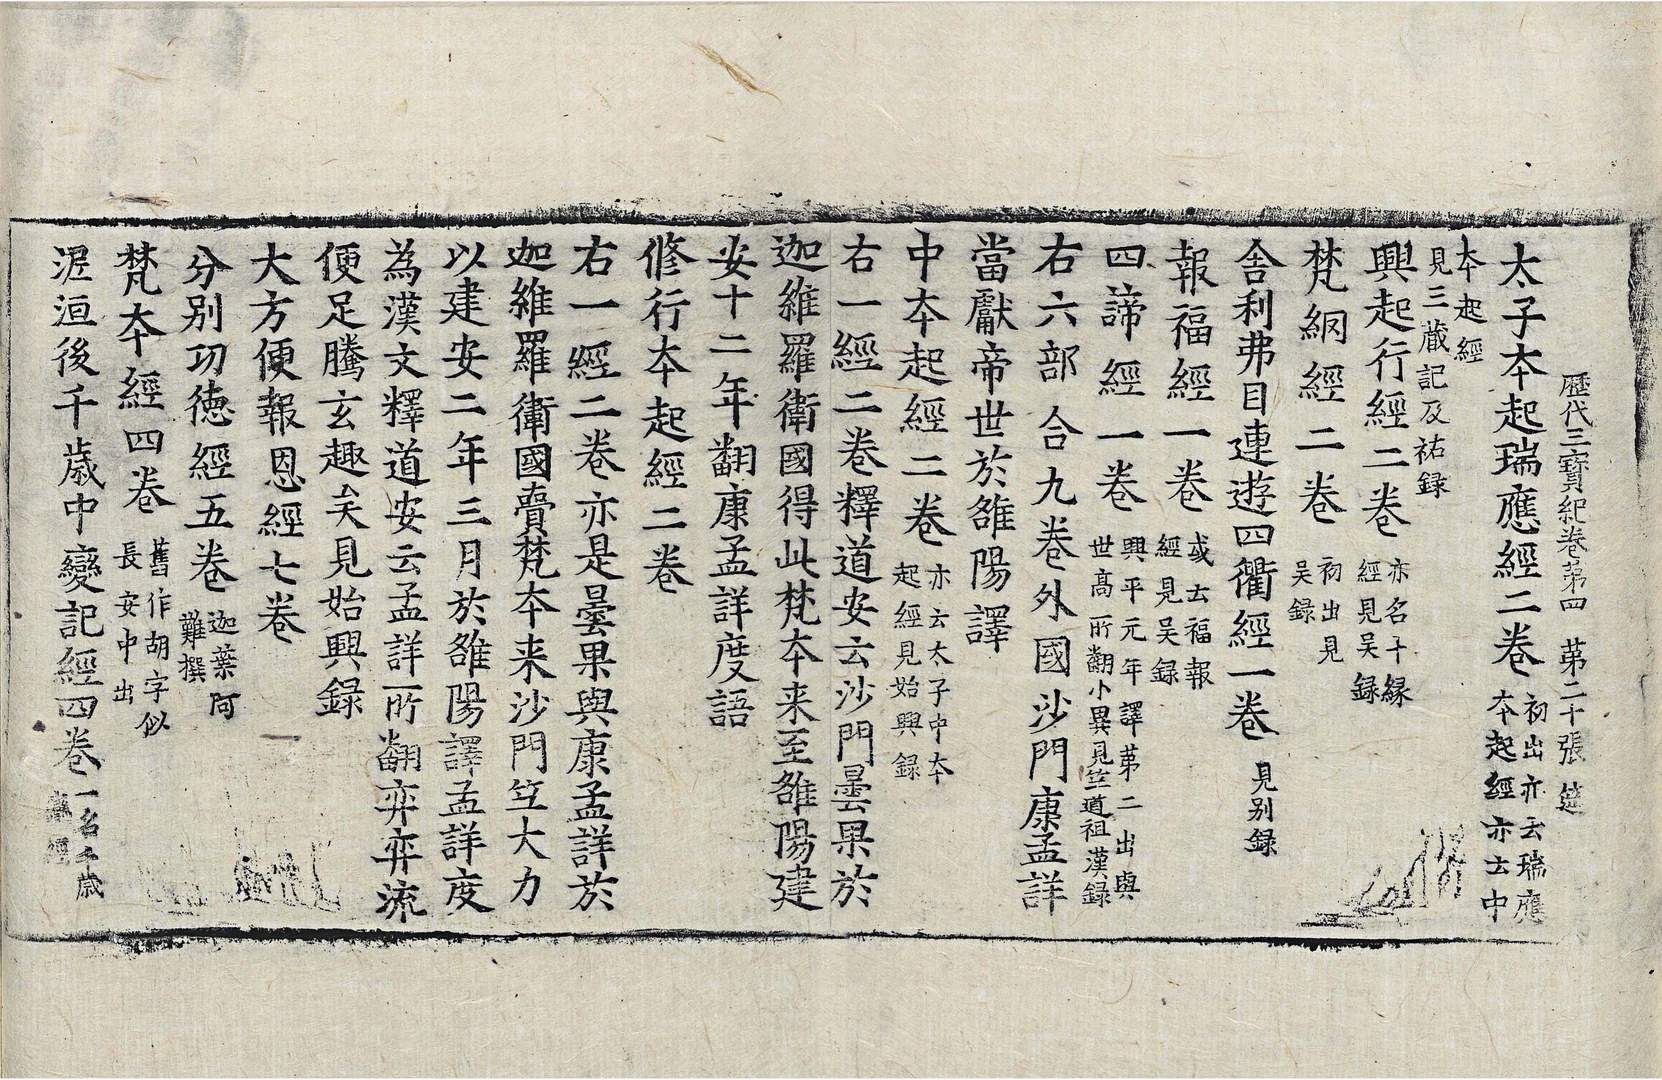 歷代三寶紀卷第四　第二十張　筵
太子夲起瑞應經二卷 初出亦云瑞應夲起經亦云中
夲起經見三蔵記及祐録
興起行經二卷 亦名十縁經見吴録
梵網經二卷 初出見吴録
舎利弗目連遊四衢經一卷 見别録
報福經一卷 或云福報經見吴録
四諦經一卷 興平元年譯苐二出與世高所翻小異見竺道祖漢録
右六部合九卷外國沙門康孟詳
當獻帝世於雒陽譯
中夲起經二卷 亦云太子中夲起經見始興録
右一經二卷釋道安云沙門曇果於
迦維羅衛國得此梵夲来至雒陽建
安十二年翻康孟詳度語
修行夲起經二卷
右一經二卷亦是曇果與康孟詳於
迦維羅衛國賫梵夲来沙門竺大力
以建安二年三月於雒陽譯孟詳度
為漢文釋道安云孟詳所翻弈弈流
便足騰玄趣矣見始興録
大方便報恩經七卷
分别功徳經五卷 迦葉阿難撰
梵夲經四卷 舊作胡字似長安中出
泥洹後千歳中變記經四卷 一名千歳變經